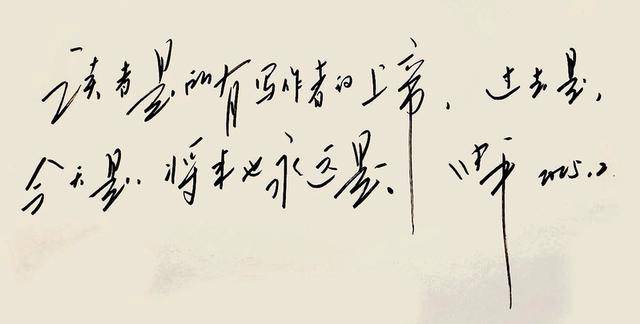 读者是所有写作者的上帝，过去是，
今天是，将来也永远是。 2025.2